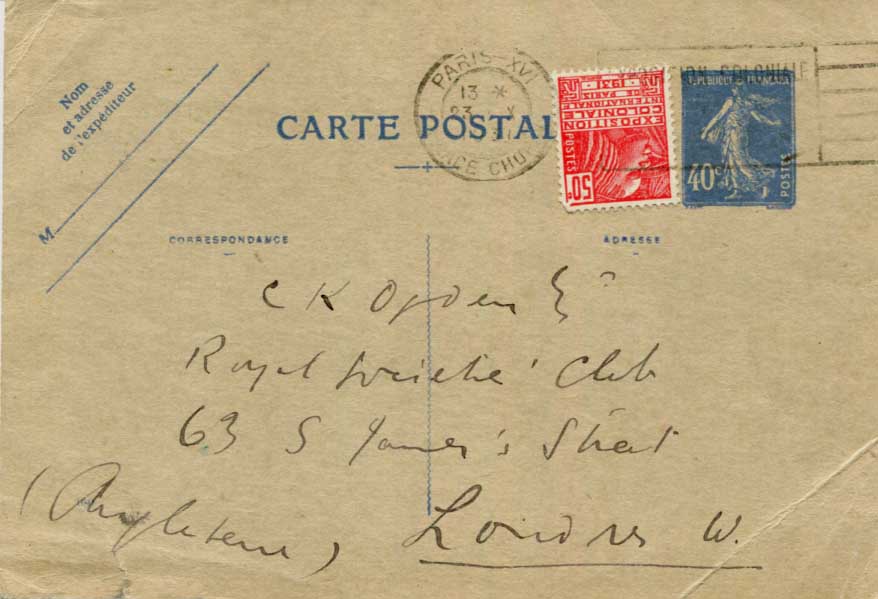 Nom
et adresse
de l'expéditeur
M
CARTE POSTAL
PARIS XVI
13 *
23 X
CE CHO
EXPOSITION
COLONIALE
INTERNATIONALE
DE PARIS
1931
POSTES
50c
COLONIALE
REPUBLIQUE FRANCAISE
40c
POSTES
CORRESPONDANCE
ADRESSE
C K Ogden Esqre
Royal Societies' Club
63 S James's Street
(Angleterre) Londres W.